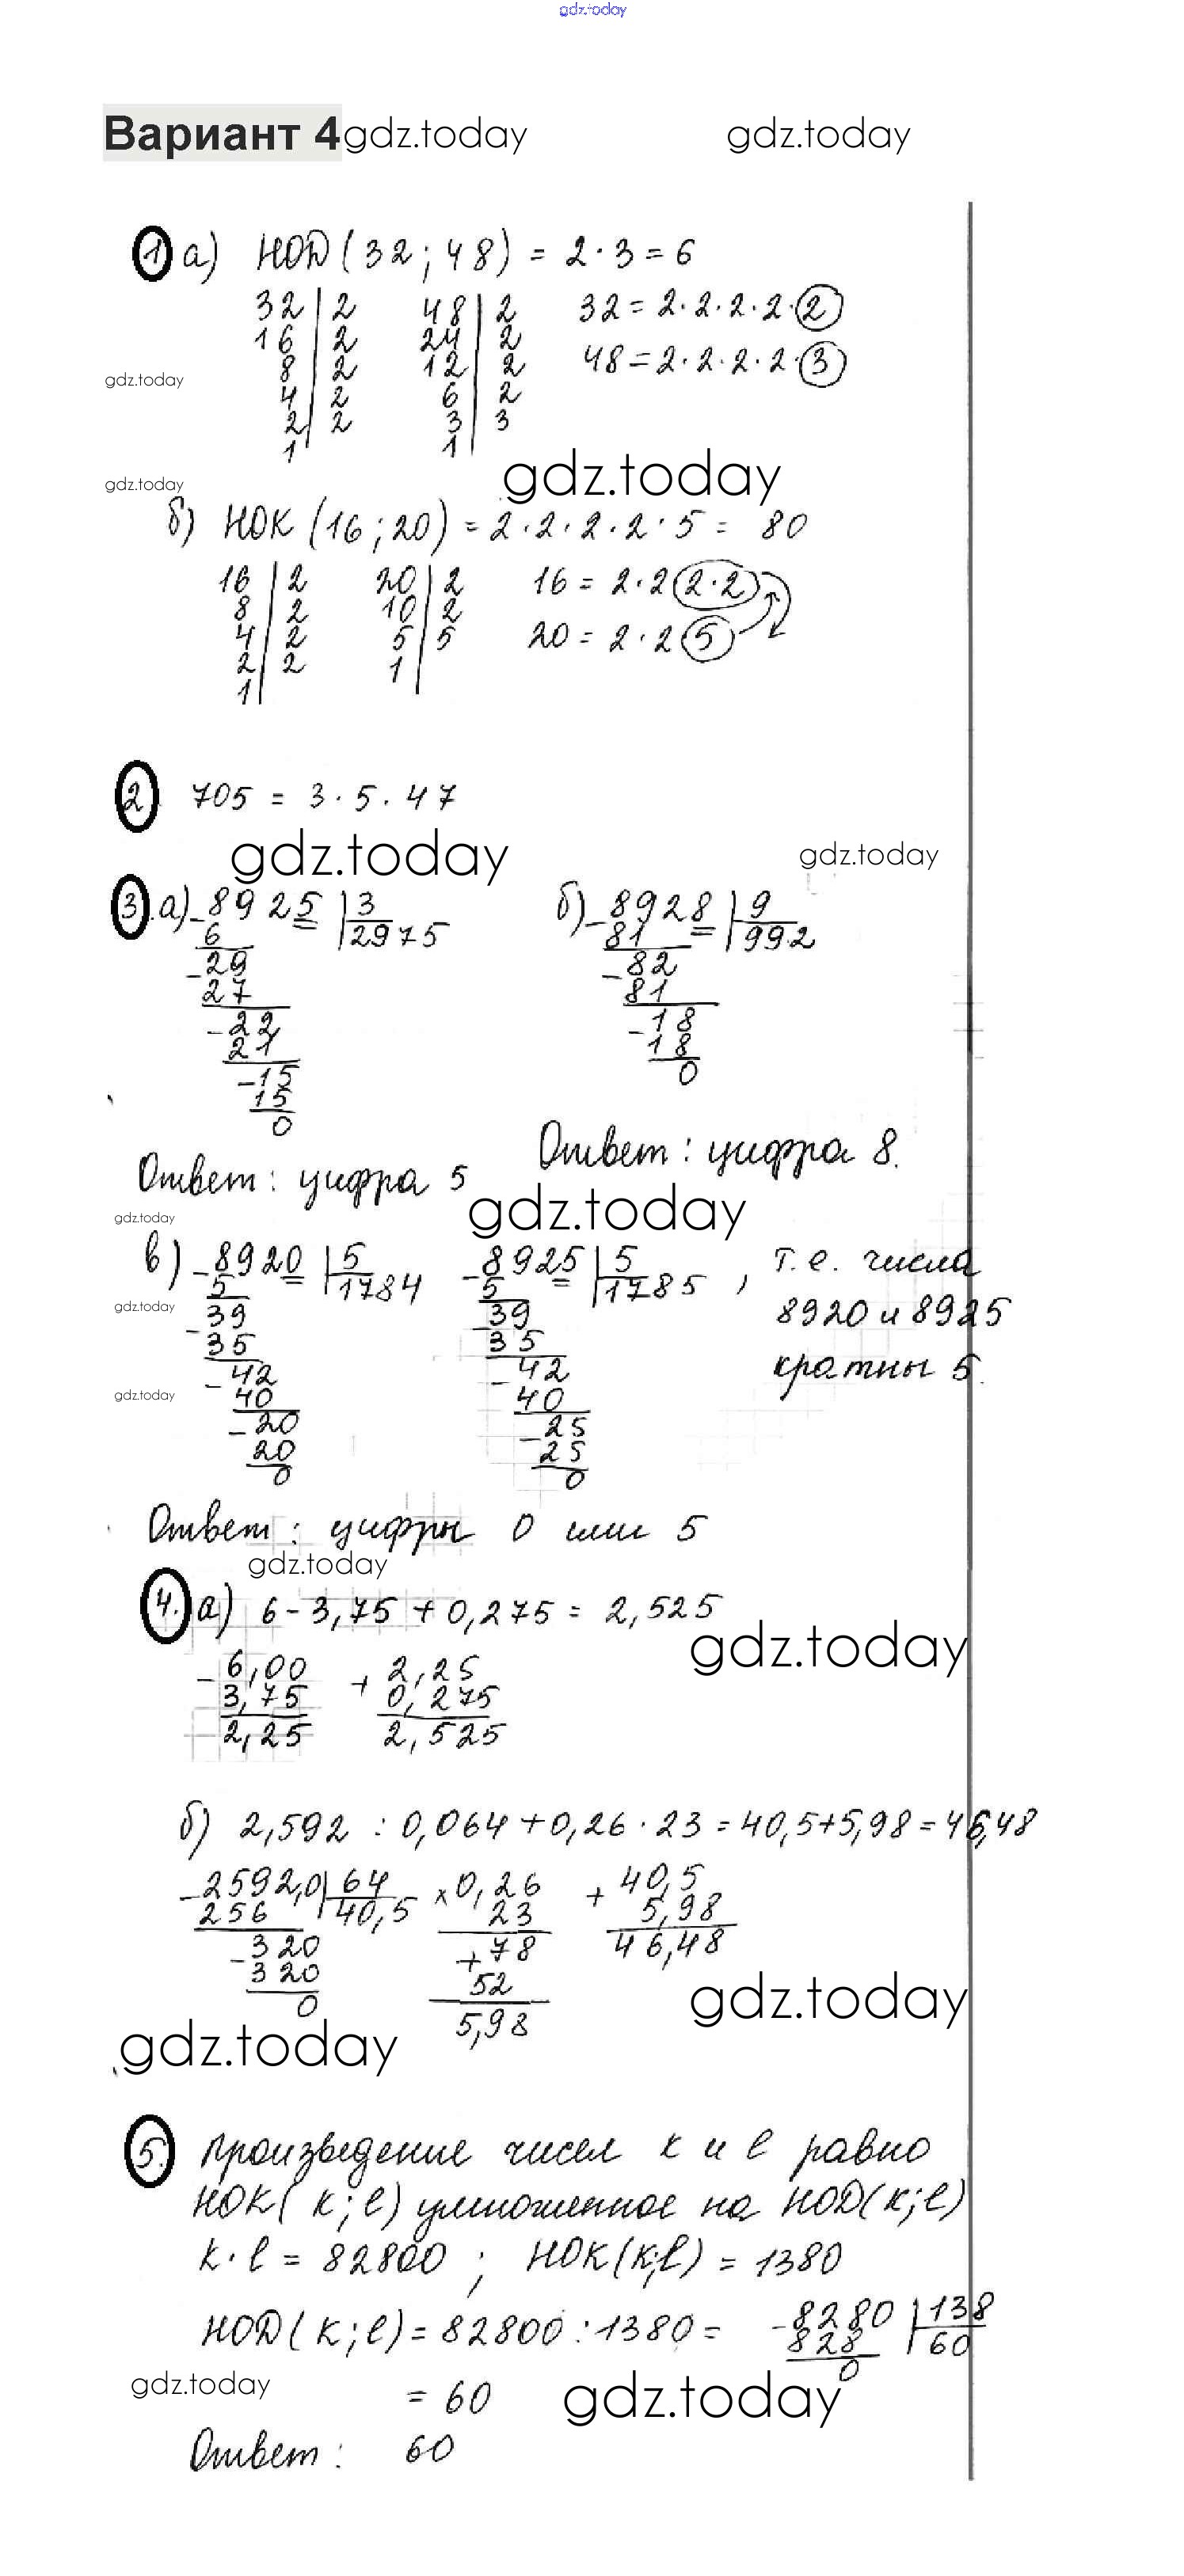 gdz.today
Вариант 4 gdz.today gdz.today
1 а) НОД (32; 48) = 2 · 3 = 6
32 | 2 48 | 2 32 = 2 · 2 · 2 · 2 · 2
16 | 2 24 | 2
8 | 2 12 | 2 48 = 2 · 2 · 2 · 2 · 3
gdz.today
4 | 2 6 | 2
2 | 2 3 | 3
1 1
gdz.today gdz.today
б) НОК (16; 20) = 2 · 2 · 2 · 2 · 5 = 80
16 | 2 20 | 2 16 = 2 · 2 (2 · 2)
8 | 2 10 | 2
4 | 2 5 | 5 20 = 2 · 2 (5)
2 | 2 1
1
2 705 = 3 · 5 · 47
gdz.today gdz.today
3. а) - 8925 | 3 б) - 8928 | 9
6 | 2975 81 | 992
- 29 - 82
27 81
- 22 - 18
21 18
- 15 0
15
0
Ответ: цифра 5 Ответ: цифра 8.
gdz.today gdz.today
в) - 8920 | 5 - 8925 | 5 , т.е. числа
5 | 1784 5 | 1785
gdz.today
- 39 - 39 8920 и 8925
35 35
- 42 - 42 кратны 5.
gdz.today
40 40
- 20 - 25
20 25
0 0
Ответ: цифры 0 или 5
gdz.today
4. а) 6 - 3,75 + 0,275 = 2,525
gdz.today
- 6,00 + 2,25
3,75 0,275
2,25 2,525
б) 2,592 : 0,064 + 0,26 · 23 = 40,5 + 5,98 = 46,48
- 2592,0 | 64 × 0,26 + 40,5
256 | 40,5 23 5,98
- 320 + 78 46,48
320 52
0 5,98
gdz.today
gdz.today
5. Произведение чисел k и l равно
НОК( k; l) умноженное на НОД(k; l)
k · l = 82800 ; НОК(k; l) = 1380
НОД( k; l) = 82800 : 1380 = - 8280 | 138
828 | 60
0
gdz.today = 60 gdz.today
Ответ: 60